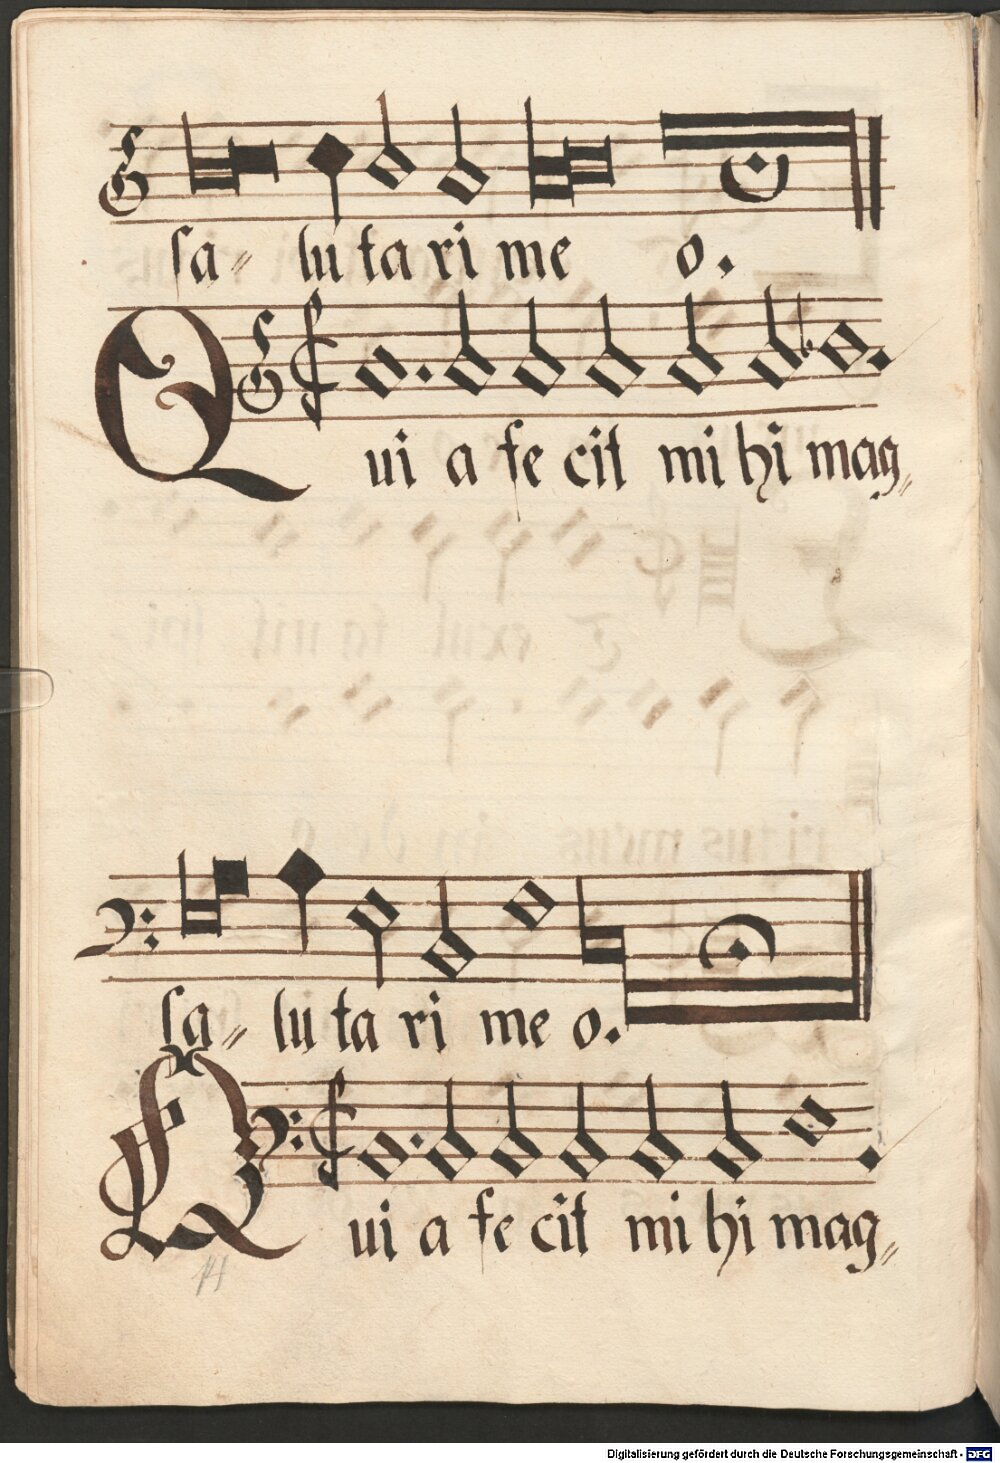 sa⸗ lu ta ri me o.
Qui a fe cit mi hi mag⸗
sa⸗ lu ta ri me o.
Qui a fe cit mi hi mag⸗
14
Digitalisierung gefördert durch die Deutsche Forschungsgemeinschaft - DFG